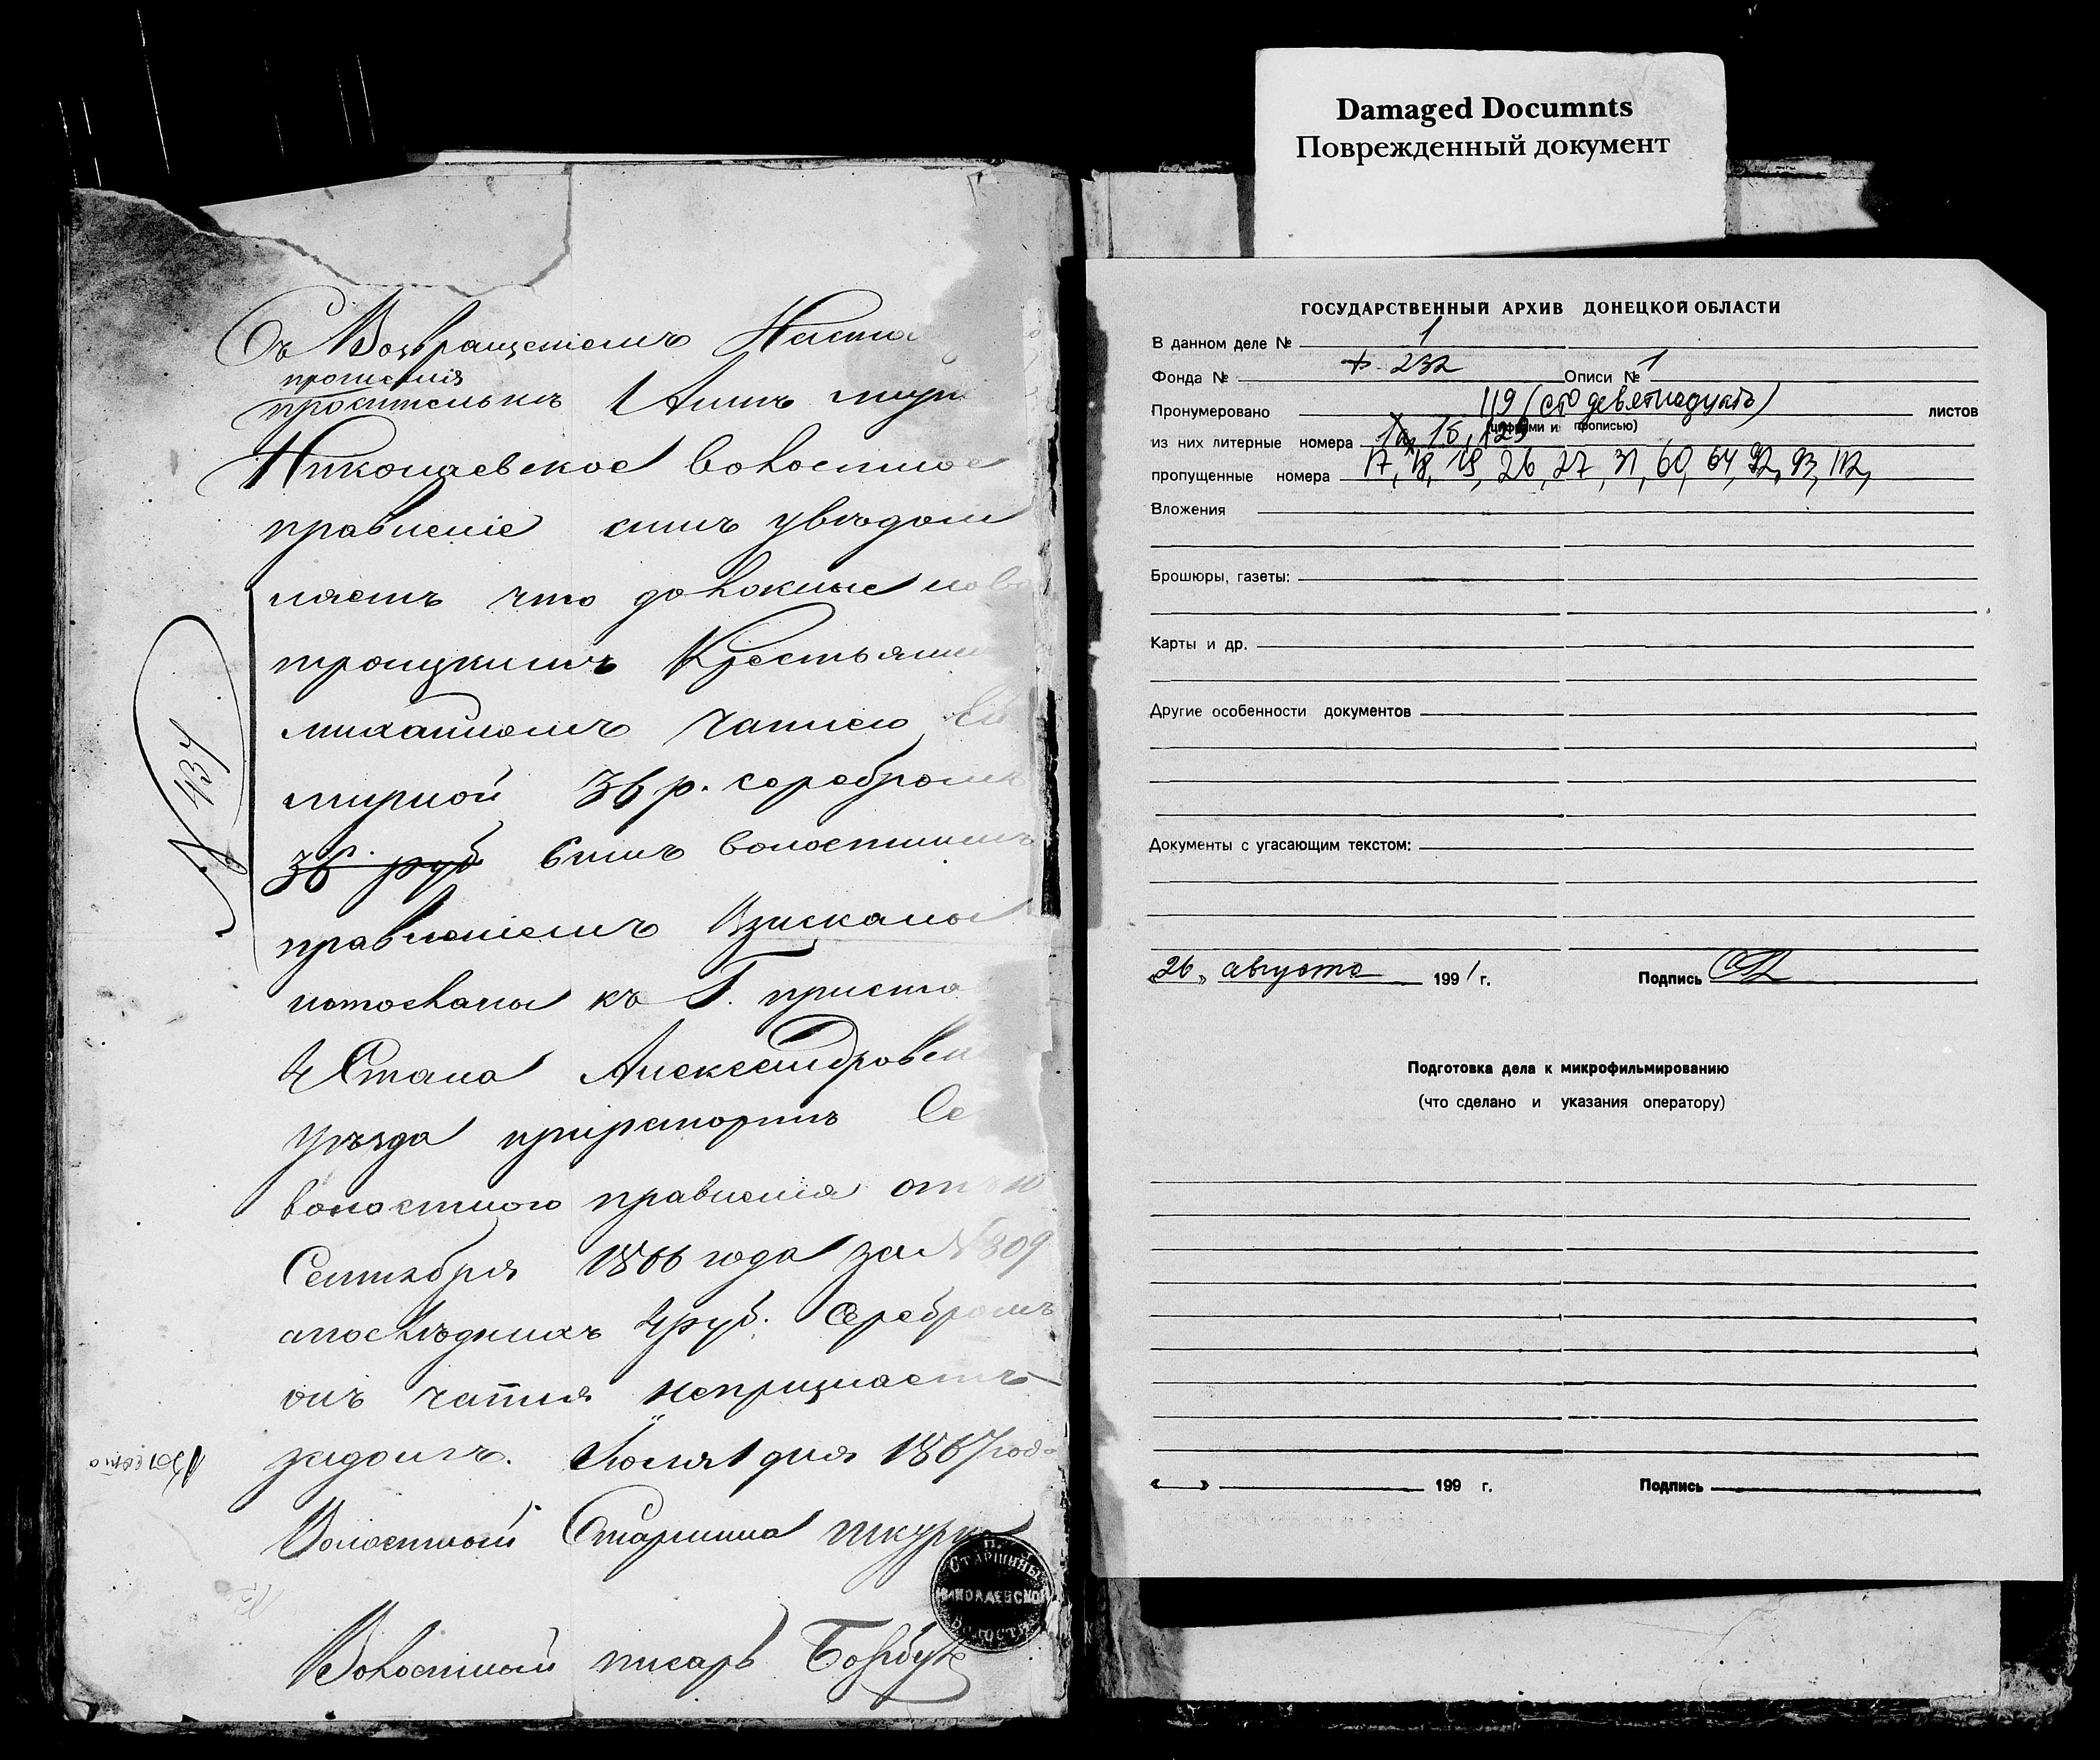 Съ Возвращеніемъ
прошенія
просительницъ Аннъ
Николаевское волостное
правленіе симъ увѣдом
ляетъ что должные ново
троицкимъ Крестьянин
михаиломъ Чаплею
мирной 36 р. серебромъ
36 руб симъ волостнымъ
правленіемъ Взысканы
иотосланы къ Г. приста
4 Стана Александровск
уѣзда прирапортъ Се
волостного правленія отъ 10
Сентября 1866 года за № 809
апослѣднихъ 4 руб. Серебромъ
онъ чапля непризнаетъ
задолгъ. Іюля 1 дня 1867 год
Волостный Старшина шкурка
Волостный писарь
№ 437
П.
СТАРШИНЫ
НИКОЛАЕВСКОЙ
ВОЛОСТИ
Damaged Documnts
Поврежденный документ
ГОСУДАРСТВЕННЫЙ АРХИВ ДОНЕЦКОЙ ОБЛАСТИ
В данном деле № 1
Фонда № ф. 232 Описи № 1
Пронумеровано 119 (сто девятнадцать) листов
(цифрами и прописью)
из них литерные номера 1а, 1б,
пропущенные номера 17, 18, 19, 26, 27, 31, 60, 64, 92, 93, 112,
Вложения
Брошюры, газеты:
Карты и др.
Другие особенности документов
Документы с угасающим текстом:
«26» августа 1991 г. Подпись
Подготовка дела к микрофильмированию
(что сделано и указания оператору)
« » 199 г. Подпись